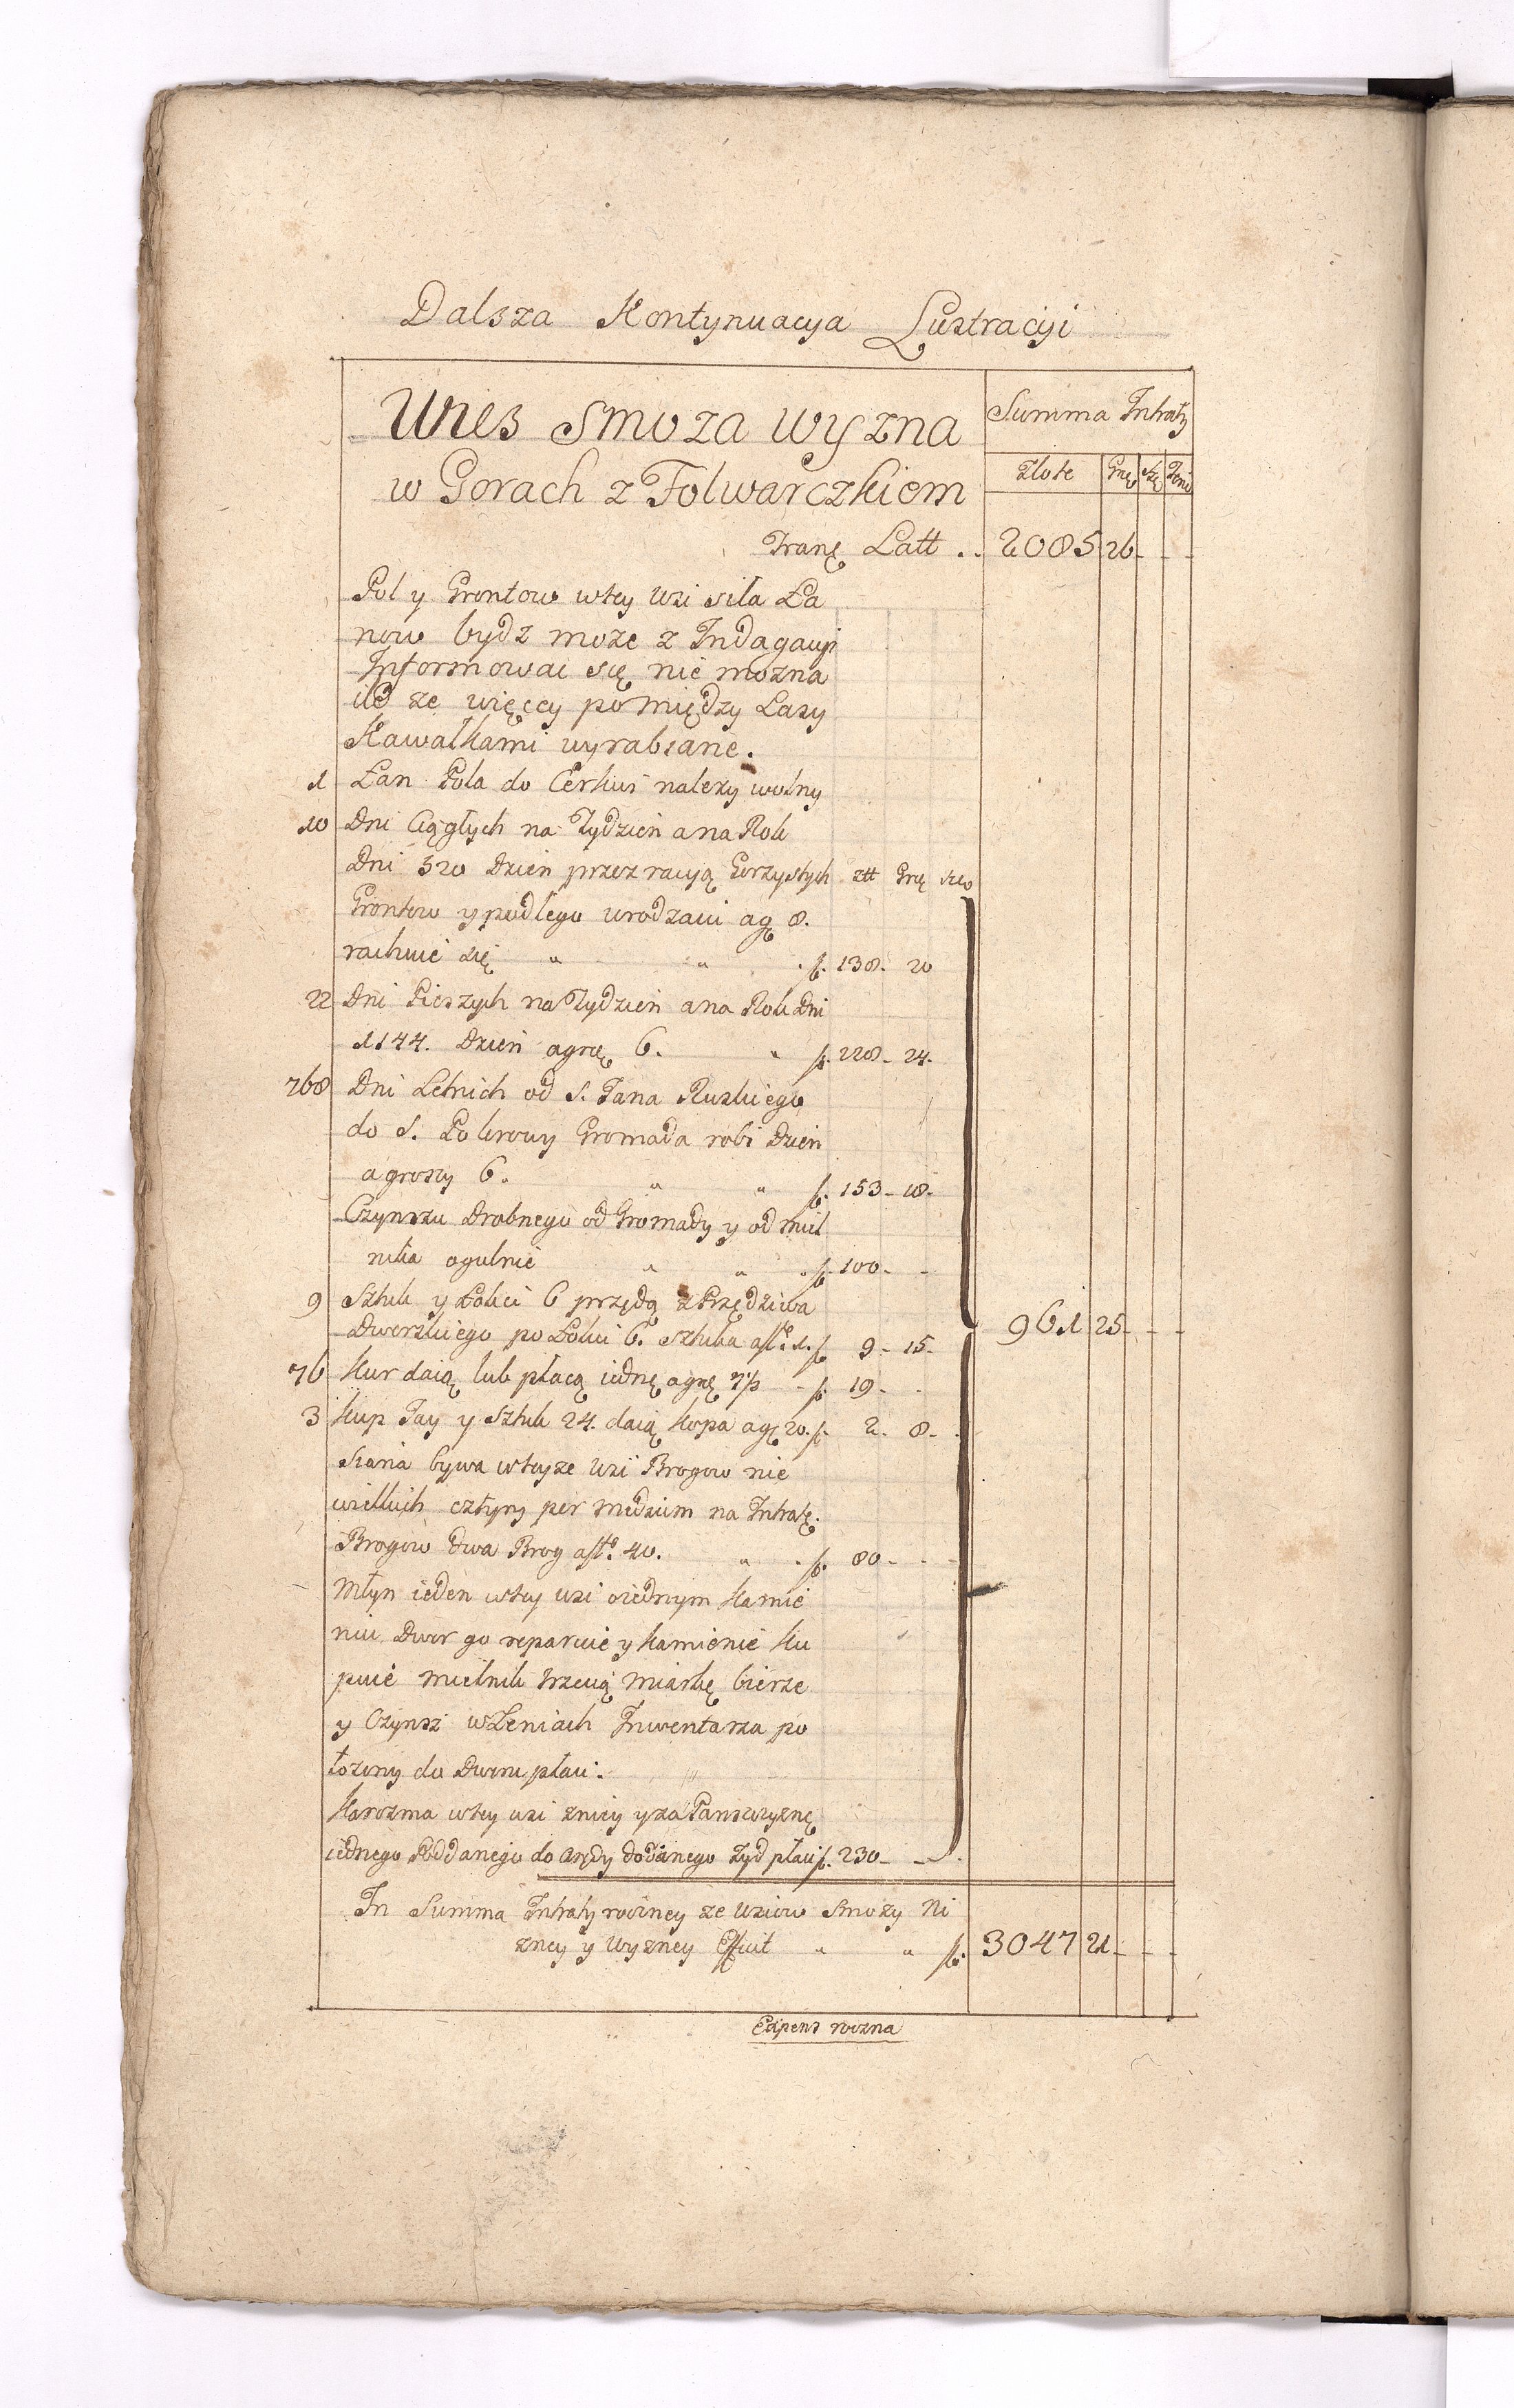 Dalsza Kontynuacya Lustracyi
Wies Smoza Wyzna
w Gorach z Folwarczkiem
Summa Intraty
Złote Grę Szę Feni
Tranę Latt . . 2085 26 - - -
Pol y Grontow wtey Wsi siła Ła
now bydz moze z Indagacyi
Informowac się nie mozna
ile ze więcey pomiędzy Lasy
Kawałkami wyrabiane.
1 Łan Pola do Cerkwi nalezy wolny
10 Dni Ciągłych na Tydzien a na Rok
Dni 520 Dzien przez racyją Gorzystych złł Grę sze
Grontow y podłego urodzaiu agę 8.
rachuie się " " . f. 138. 20
22 Dni Pieszych na Tydzien a na Rok Dni
1144. Dzien agrę 6. " f. 228 - 24.
768 Dni Letnich od S. Jana Ruskiego
do S. Pokrowy Gromada robi Dzien
agroszy 6. " " f. 153 - 18 -
Czynszu Drobnego od Gromady y od miel
nika ogulnie " " . f. 100 - -
9 Sztuk y Łokci 6 przędą z Przędziwa
Dworskiego po Łokci 6. Sztuka aſł: 1. f. 9 - 15 -
961 25 - - -
76 Kur daią lub płacą iednę agrę 7½ - f. 19 - .
3 Kup Jay y Sztuk 24. daią kopa agę 20. f. 2 - 8 -
Siana bywa wteyze Wsi Brogow nie
wielkich cztyry per medium na Intratę.
Brogow dwa Brog aſł. 40. " . f. 80 - - -
Młyn ieden wtey wsi oiednym kamie
niu Dwor go reparuie y kamienie ku
puie mielnik trzecią miarkę bierze
y Czynsz wLeniach Inwentarza po
łozony do Dworu płaci.
Karczma wtey wsi zniey yza Panszczyznę
iednego Poddanego do Arędy dodanego Zyd płaci f. 230 - -
In Summa Intraty roczney ze Wsiow Smozy Ni
zney y Wyzney Efficit " " f. 3047 21 - - -
Expens roczna